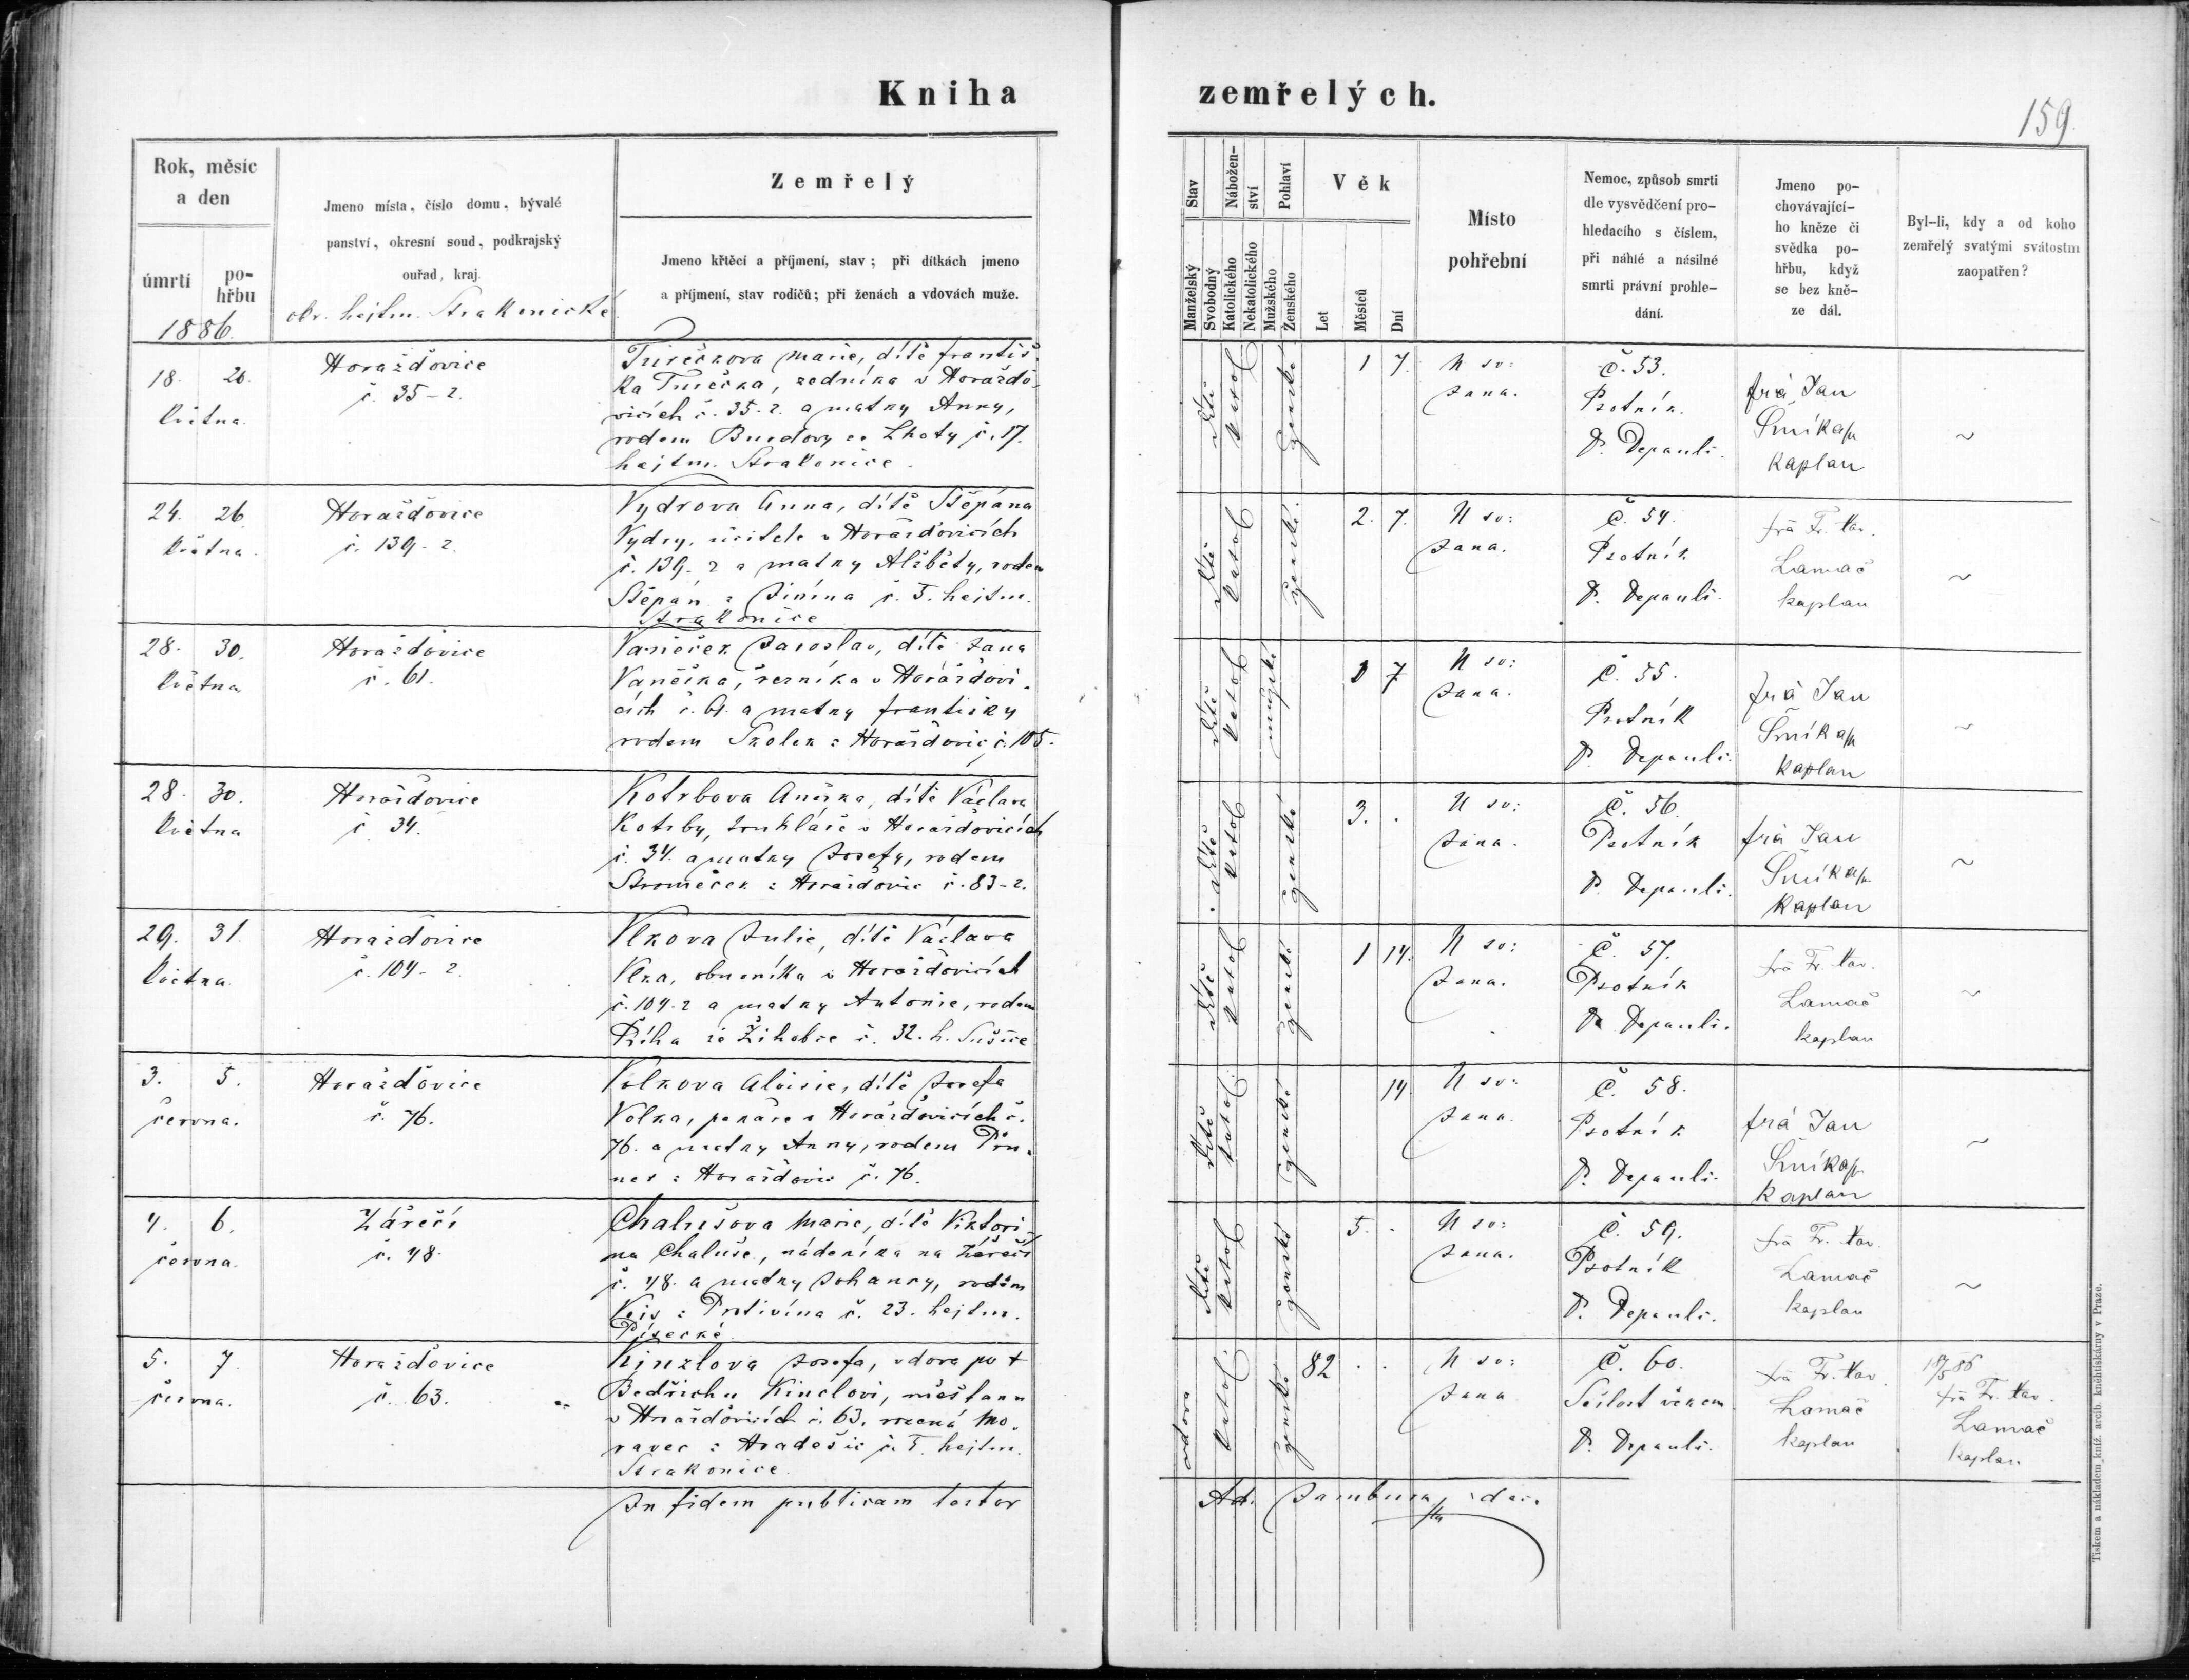 Kniha zemřelých.
159
Rok, měsíc
a den
úmrtí
po-
hřbu
1886.
Jmeno místa, číslo domu, bývalé
panství, okresní soud, podkrajský
ouřad, kraj.
okr. hejtm. Strakonické
Zemřelý
Jmeno křtěcí a příjmení, stav; při dítkách jmeno
a příjmení, stav rodičů; při ženách a vdovách muže.
Stav
Manželský
Svobodný
Nábožen-
ství
Katolického
Nekatolického
Pohlaví
Mužského
Ženského
Věk
Let
Měsíců
Dní
Místo
pohřební
Nemoc, způsob smrti
dle vysvědčení pro-
hledacího s číslem,
při náhlé a násilné
smrti právní prohle-
dání.
Jmeno po-
chovávající-
ho kněze či
svědka po-
hřbu, když
se bez kně-
ze dál.
Byl-li, kdy a od koho
zemřelý svatými svátostm
zaopatřen?
18. 20.
Května
Horažďovice
č. 35-2.
Marie, dítě Františ-
ka, rodníka v Horaždo-
vicích č. 35.2. a matky Anny,
rodem ze Lhoty č. 17.
hejtm. Strakonice.
dítě
katol
ženské
1 7.
U sv:
Jana.
Č. 53.
Psotník.
D. Depauli.
frá Jan
kaplan
~
24. 26
Května.
Horažďovice
č. 139-2.
Vydrova Anna, dítě Štěpána
Vydry, učitele v Horažďovicích
č. 139-2 a matky Alžběty, rodem
Štěpán z Jinína č. 5. hejtm.
Strakonice
dítě
katol
ženské
2. 7.
U sv:
Jana.
Č. 54.
Psotník
D. Depauli.
frá Fr. Xav.
Lamač
kaplan
~
28. 30.
Května
Horažďovice
č. 61.
Vaněček Jaroslav, dítě Jana
Vaněčka, řezníka v Horažďovi-
cích č. 61. a matky Františky
rodem Skolek z Horažďovic č. 105.
dítě
katol
mužské
1 7
U sv:
Jana.
Č. 55.
Psotník
D. Depauli.
frá Jan
kaplan
~
28. 30.
Května
Horažďovice
č. 34.
Kotrbova Anežka, dítě Václava
Kotrby, truhláře v Horažďovicích
č. 34. a matky Josefy, rodem
Stromeček z Horažďovic č. 83-2.
dítě
katol
ženské
3. .
U sv:
Jana.
Č. 56.
Psotník
D. Depauli.
frá Jan
kaplan
~
29. 31.
Května.
Horažďovice
č. 104-2.
Vlkova Julie, dítě Václava
Vlka, obuvníka v Horažďovicích
č. 104-2 a matky Antonie, rodem
Říha ze Žihobce č. 32. h. Sušice
dítě
katol
ženské
1 14.
U sv:
Jana.
Č. 57.
Psotník
D. Depauli.
frá Fr. Xav.
Lamač
kaplan
~
3. 5.
června.
Horažďovice
č. 76.
Volkova Aloisie, dítě Josefa
Volka, pekaře v Horažďovicích č.
76. a matky Anny, rodem
z Horažďovic č. 76.
dítě
katol
ženské
14.
U sv:
Jana.
Č. 58.
Psotník
D. Depauli.
frá Jan
kaplan
~
4. 6.
června.
Zářečí
č. 48.
Chalušova Marie, dítě Viktori-
na Chaluše, nádeníka na Zářečí
č. 48. a matky Johanny, rodem
Vejs z Protivína č. 23. hejtm.
Písecké.
dítě
katol
ženské
5. .
U sv:
Jana.
Č. 59.
Psotník
D. Depauli.
frá Fr. Xav.
Lamač
kaplan
~
5. 7.
června.
Horažďovice
č. 63.
Kinzlova Josefa, vdova po †
Bedřichu Kinclovi, měšťanu
v Horažďovicích č. 63, rozená Mo-
ravec z Hradešic č. 5. hejtm.
Strakonice.
vdova
katol
ženské
82 . .
U sv:
Jana
Č. 60.
Sešlost věkem
D. Depauli.
frá Fr. Xav.
Lamač
kaplan
18/5 86
frá Fr. Xav.
Lamač
kaplan
In fidem publicam testor
Ad. Jambura
Tiskem a nákladem kníž. arcib. kněhtiskárny v Praze.